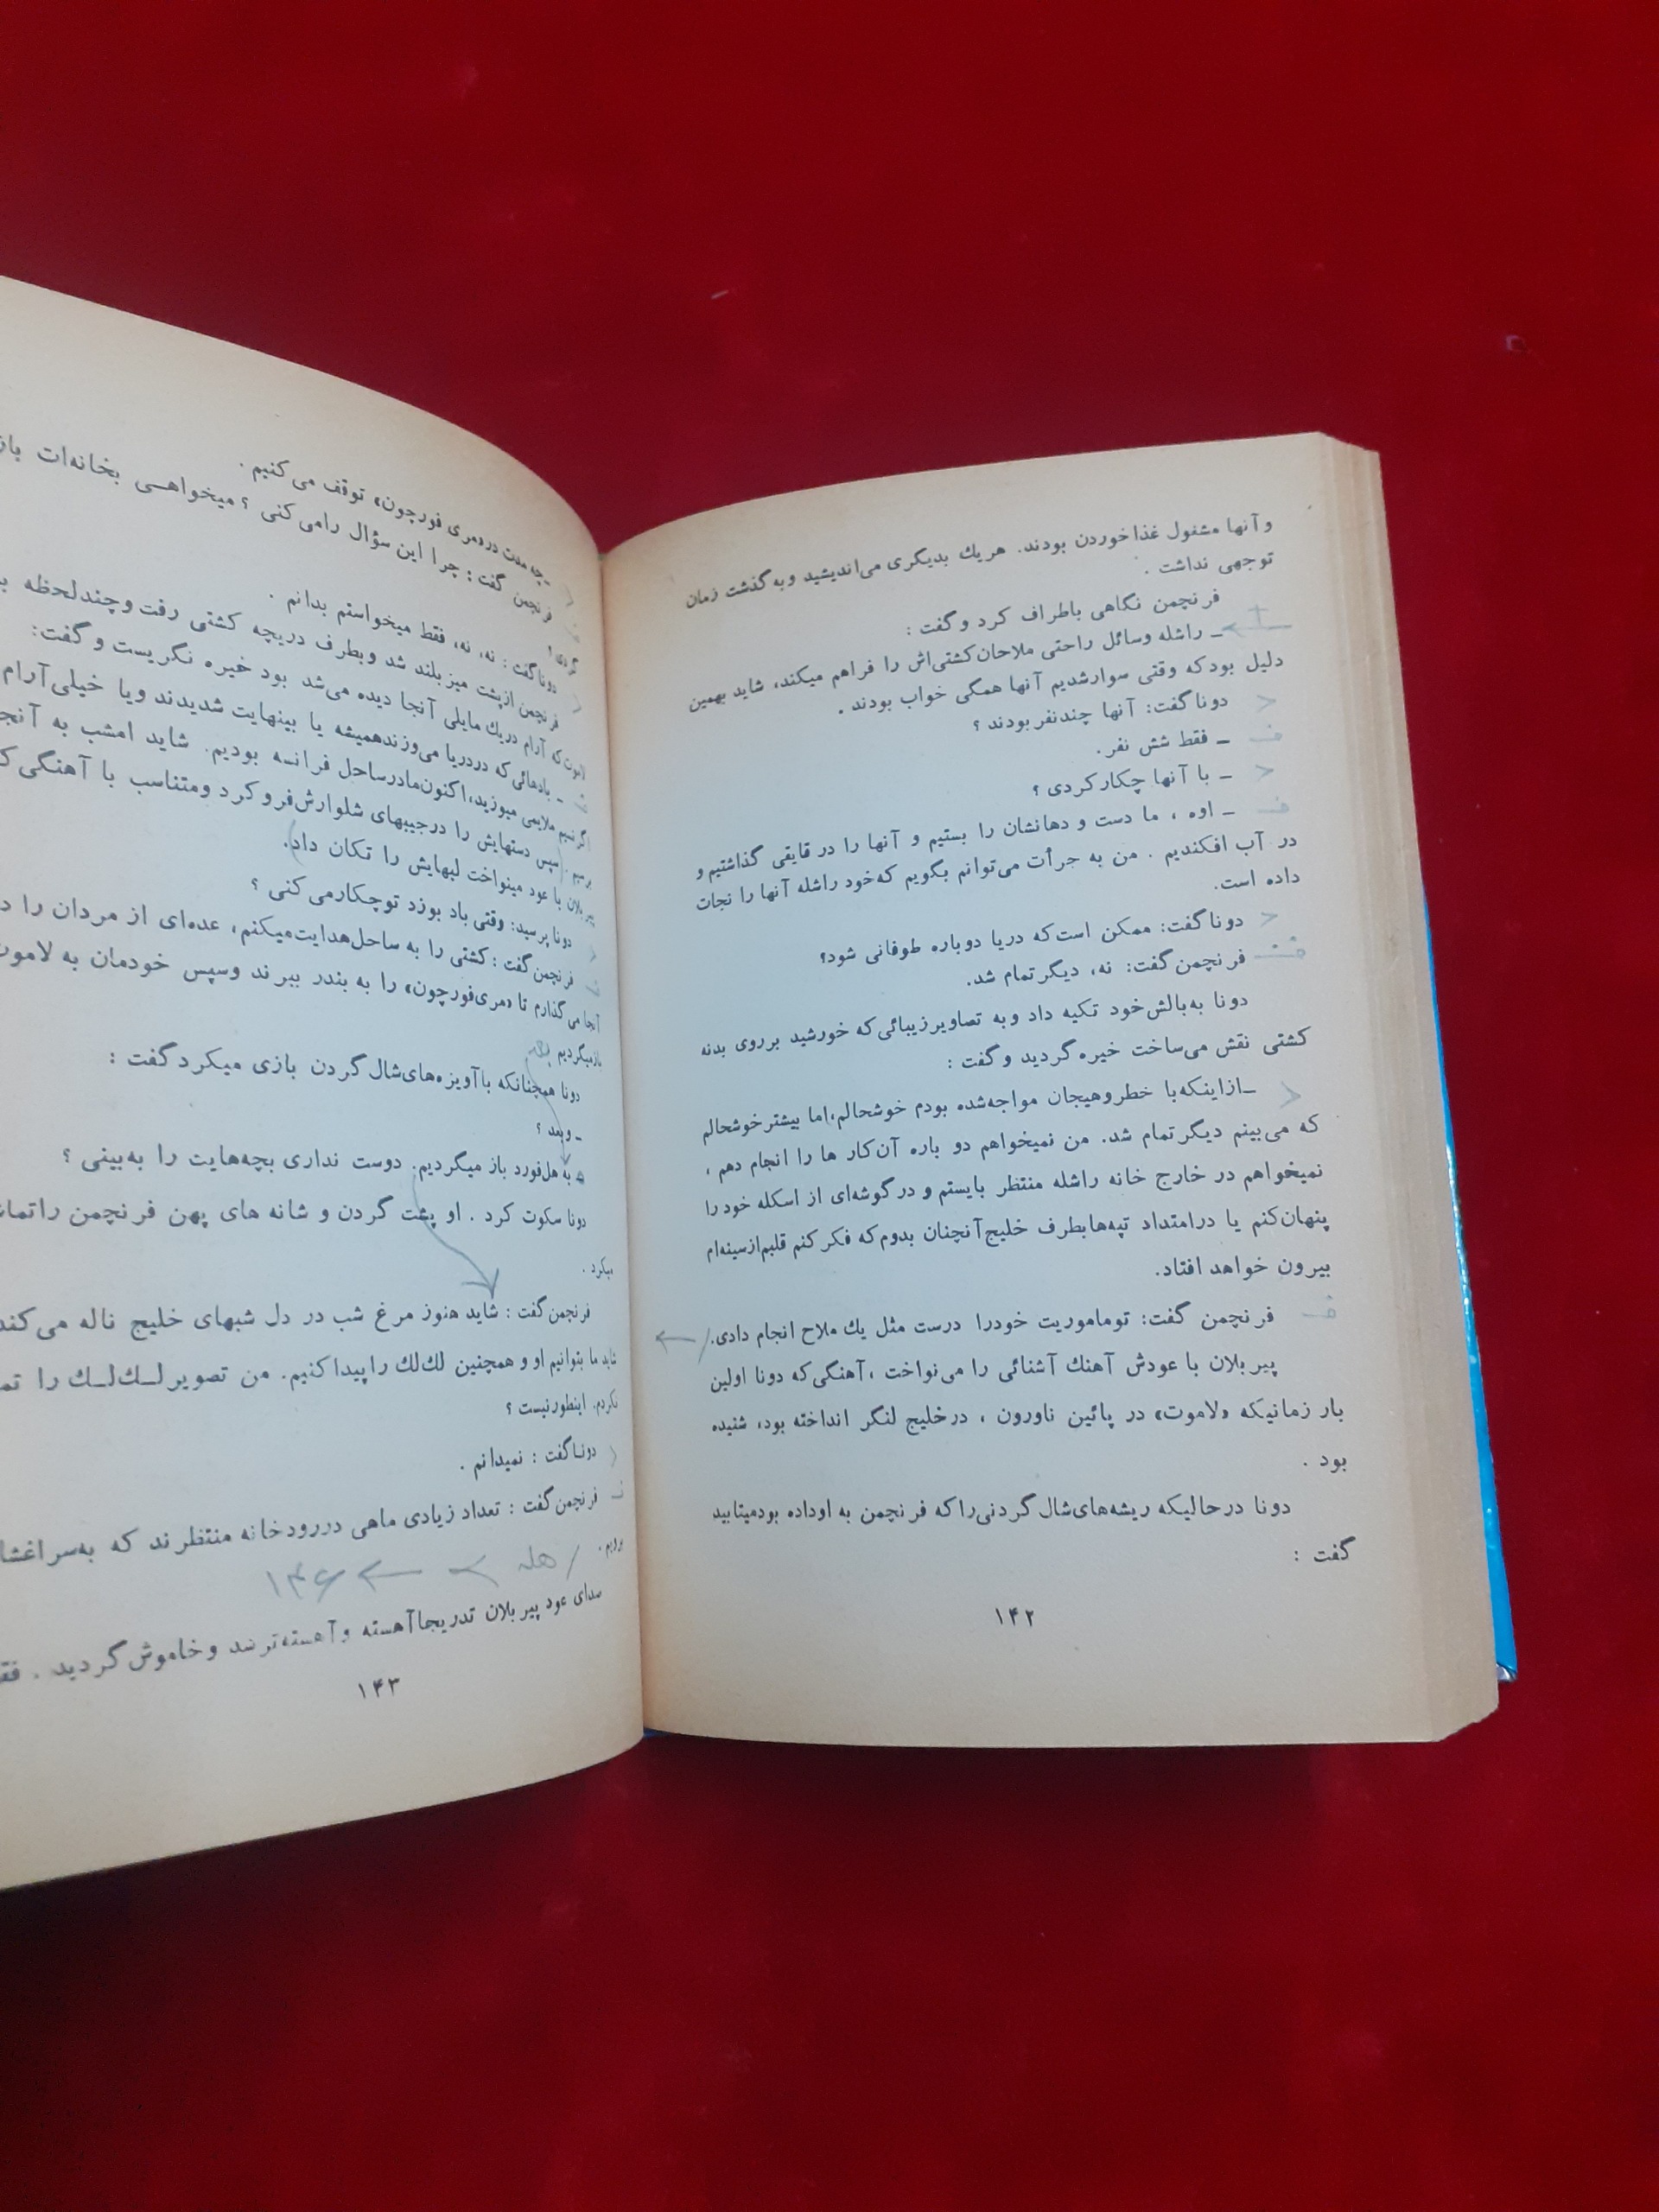 و آنها مشغول غذا خوردن بودند. هریك بدیگری می‌اندیشید و به گذشت زمان
توجهی نداشت .
فرنچمن نگاهی باطراف کرد و گفت :
ــ راشله وسائل راحتی ملاحان کشتی‌اش را فراهم میکند، شاید بهمین
دلیل بود که وقتی سوار شدیم آنها همگی خواب بودند .
دونا گفت: آنها چند نفر بودند ؟
ــ فقط شش نفر.
ــ با آنها چکار کردی ؟
ــ اوه ، ما دست و دهانشان را بستیم و آنها را در قایقی گذاشتیم و
در آب افکندیم . من به جرأت می‌توانم بگویم که خود راشله آنها را نجات
داده است.
دونا گفت: ممکن است که دریا دوباره طوفانی شود؟
فرنچمن گفت: نه، دیگر تمام شد.
دونا به بالش خود تکیه داد و به تصاویر زیبائی که خورشید بر روی بدنه
کشتی نقش می‌ساخت خیره گردید و گفت :
ــ از اینکه با خطر و هیجان مواجه شده بودم خوشحالم، اما بیشتر خوشحالم
که می‌بینم دیگر تمام شد. من نمیخواهم دو باره آن کار ها را انجام دهم ،
نمیخواهم در خارج خانه راشله منتظر بایستم و در گوشه‌ای از اسکله خود را
پنهان کنم یا در امتداد تپه‌ها بطرف خلیج آنچنان بدوم که فکر کنم قلبم از سینه‌ام
بیرون خواهد افتاد.
فرنچمن گفت: تو ماموریت خود را درست مثل یك ملاح انجام دادی.
پیر بلان با عودش آهنك آشنائی را می‌نواخت ، آهنگی که دونا اولین
بار زمانیکه «لاموت» در پائین ناورون ، در خلیج لنگر انداخته بود، شنیده
بود .
دونا در حالیکه ریشه‌های شال گردنی را که فرنچمن به او داده بود میتابید
گفت :
۱۴۲
ــ چه مدت در «مری فورچون» توقف می‌کنیم .
فرنچمن گفت : چرا این سؤال را می‌کنی ؟ میخواهی بخانه‌ات باز
گردی ؟
دونا گفت : نه، نه، فقط میخواستم بدانم .
فرنچمن از پشت میز بلند شد و بطرف دریچه کشتی رفت و چند لحظه
لاموت که آرام در یك مایلی آنجا دیده می‌شد بود خیره نگریست و گفت:
ــ بادهائی که در دریا می‌وزند همیشه یا بینهایت شدیدند و یا خیلی آرام
اگر نسیم ملایمی میوزید، اکنون ما در ساحل فرانسه بودیم. شاید امشب به آنجا
برسیم . سپس دستهایش را در جیبهای شلوارش فرو کرد و متناسب با آهنگی که
پیر بلان با عود مینواخت لبهایش را تکان داد.
دونا پرسید: وقتی باد بوزد تو چکار می‌کنی ؟
فرنچمن گفت : کشتی را به ساحل هدایت میکنم، عده‌ای از مردان را در
آنجا می‌گذارم تا «مری فورچون» را به بندر ببرند و سپس خودمان به لاموت
باز میگردیم
دونا همچنانکه با آویزه‌های شال گردن بازی میکرد گفت :
ــ و بعد ؟
به هل‌فورد باز میگردیم. دوست نداری بچه‌هایت را به‌بینی ؟
دونا سکوت کرد . او پشت گردن و شانه های پهن فرنچمن را تماشا
میکرد .
فرنچمن گفت : شاید هنوز مرغ شب در دل شبهای خلیج ناله می‌کند
شاید ما بتوانیم او و همچنین لك‌لك را پیدا کنیم. من تصویر لــك‌لــك را
نکردم. اینطور نیست ؟
دونا گفت : نمیدانم .
فرنچمن گفت : تعداد زیادی ماهی در رودخانه منتظرند که به سراغشان
برویم .
۱۴۶
صدای عود پیر بلان تدریجا آهسته و آهسته‌تر شد و خاموش گردید .
۱۴۳